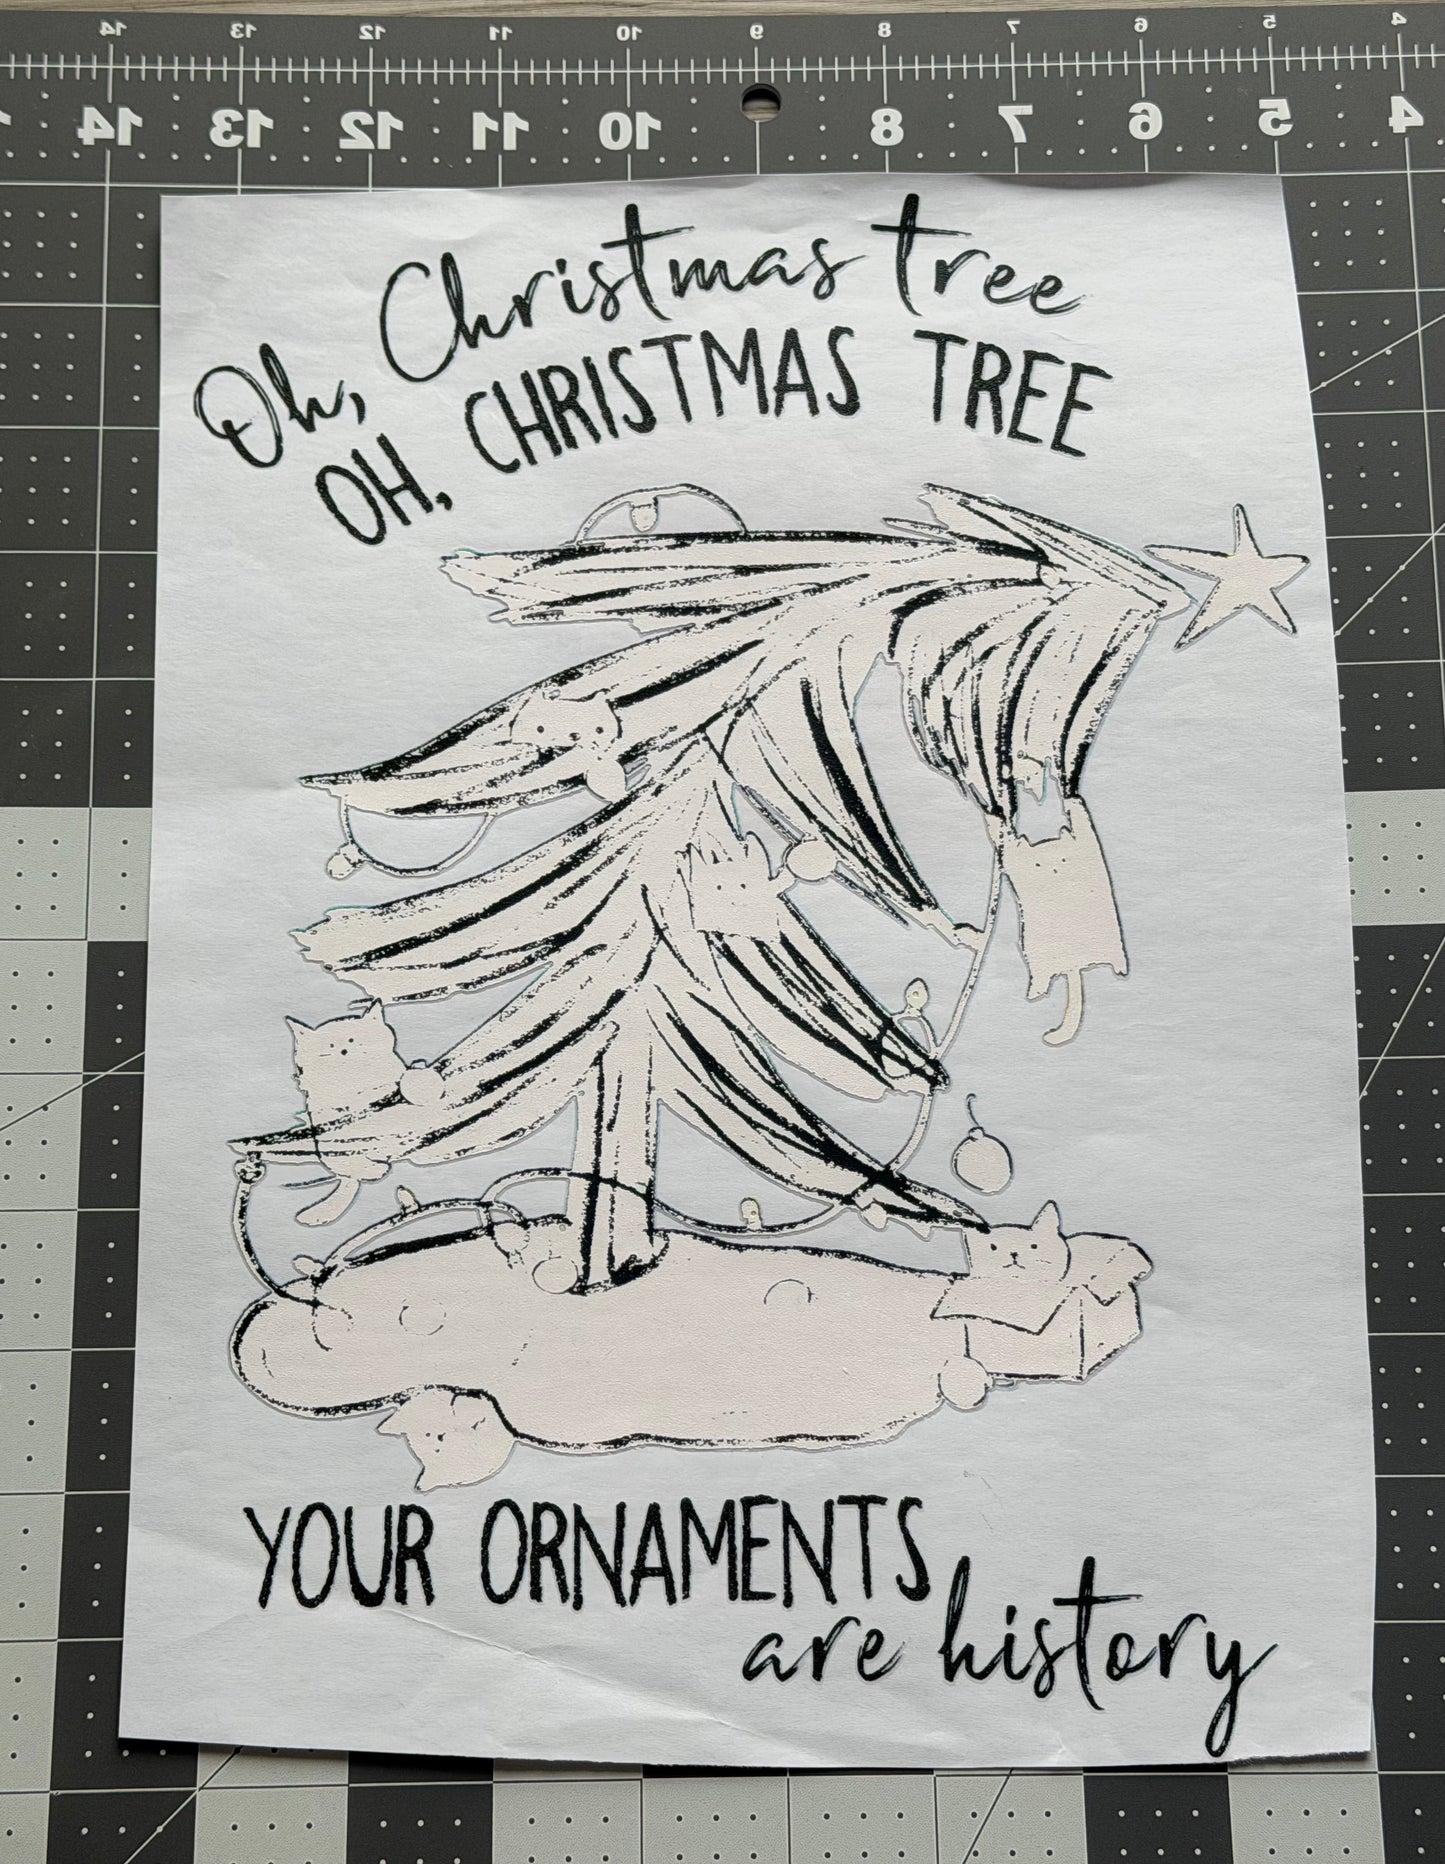 14 13 12 11 10 9 8 7 6 5 4
14 13 12 11 10 8 7 6 5 4
Oh, Christmas tree
OH, CHRISTMAS TREE
YOUR ORNAMENTS
are history